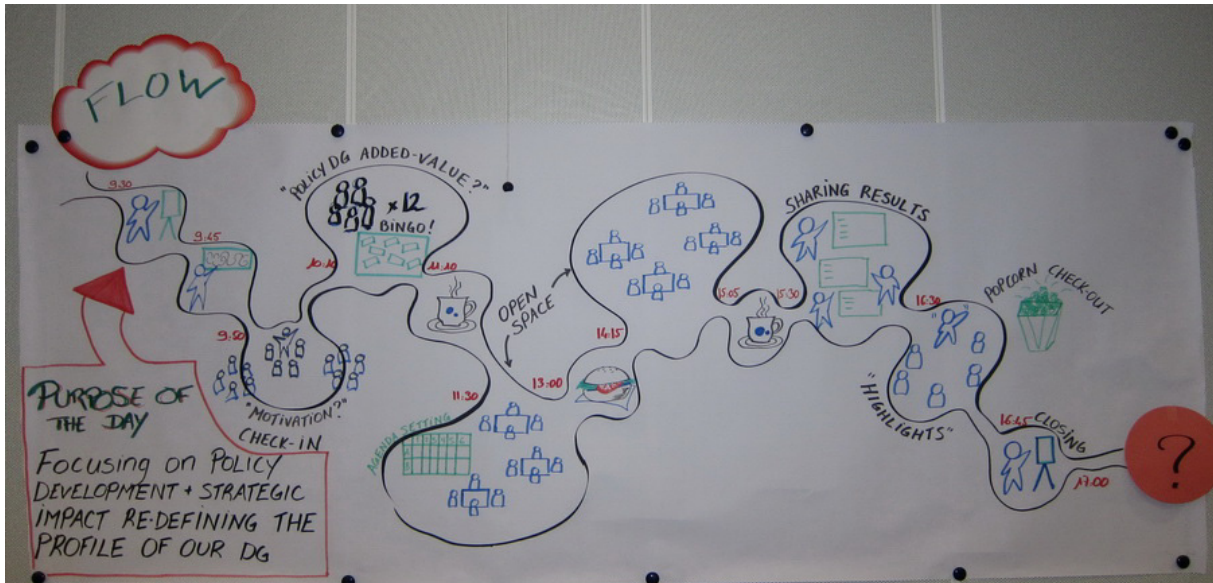 FLOW
9:30
9:45
9:50
"MOTIVATION?"
CHECK-IN
PURPOSE OF
THE DAY
FOCUSING ON POLICY
DEVELOPMENT + STRATEGIC
IMPACT RE-DEFINING THE
PROFILE OF OUR DG
10:10
"POLICY DG ADDED-VALUE?"
x 12
BINGO!
11:10
11:30
AGENDA SETTING
OPEN
SPACE
13:00
14:15
15:05
15:30
SHARING RESULTS
16:30
POPCORN CHECK-OUT
"HIGHLIGHTS"
16:45
CLOSING
17.00
?